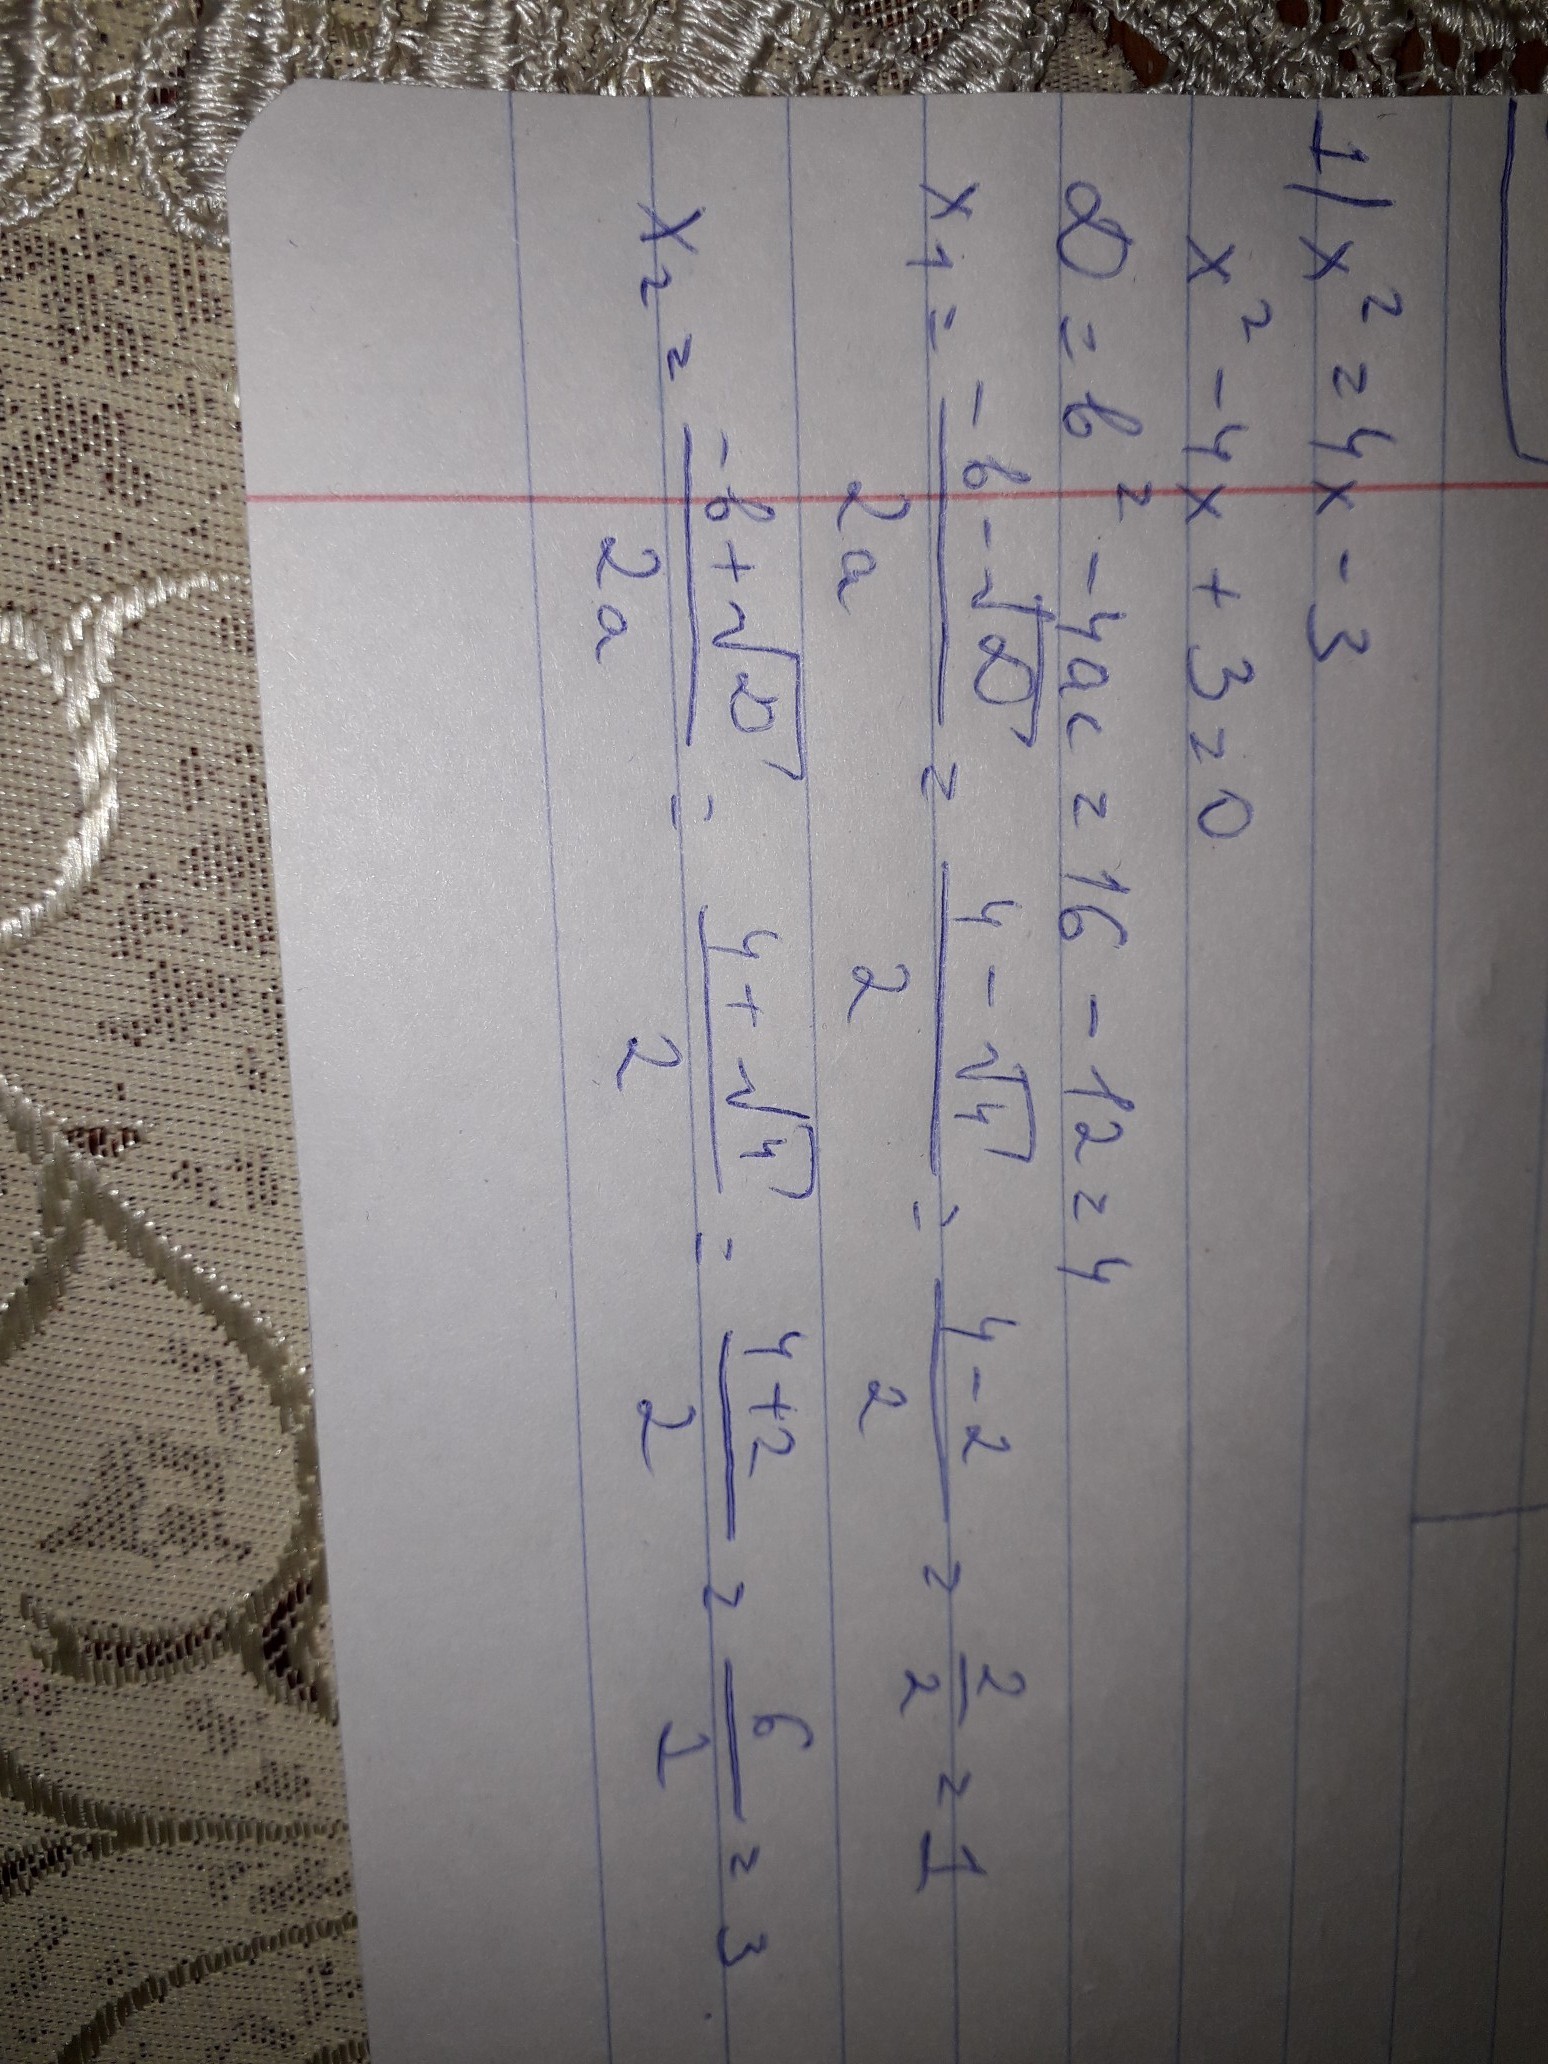 1/ x² = 4x - 3
x² - 4x + 3 = 0
D = b² - 4ac = 16 - 12 = 4
x₁ = (-b - √D)/2a = (4 - √4)/2 = (4 - 2)/2 = 2/2 = 1
x₂ = (-b + √D)/2a = (4 + √4)/2 = (4 + 2)/2 = 6/1 = 3